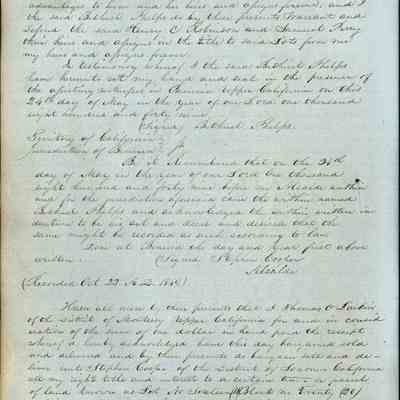 advantages to him and his heirs and assigns forever. and I
the said Bethuel Phelps do by these presents Warrant and
defend the said Henry C Robinson and Samuel Perry
their heirs and assigns in the title to said Lots from me
my heirs and assigns forever.
In testimony whereof I the said Bethuel Phelps
have hereunto set my hand and seal in the presence of
the assisting witnesses in Benicia Upper California on this
24th day of May in the year of our Lord one thousand
eight hundred and forty nine
(Signed) Bethuel Phelps
Territory of California
Jurisdiction of Benicia
Be it Remembered that on the 24th
day of May in the year of our Lord One thousand
eight hundred and forty nine before me Alcalde within
and for the jurisdiction aforesaid came the within named
Bethuel Phelps and acknowledged the within written in
denture to be his act and deed and desired that the
same might be recorded as such according to law
Done at Benicia the day and year first above
written (Signed Stephen Cooper
Alcalde
(Recorded Oct 22 A.D. 1849)
Know all men by these presents that I Thomas O Larkin
of the District of Monterey Upper California for and in consid
eration of the sum of one dollar in hand paid the receipt
whereof is hereby acknowledged have this day bargained sold
and delivered and by these presents do bargain sell and de-
liver unto Stephen Cooper of the District of Sonoma California
all my right title and interest to a certain parcel
of land known as Lot No Block No Twenty (20)